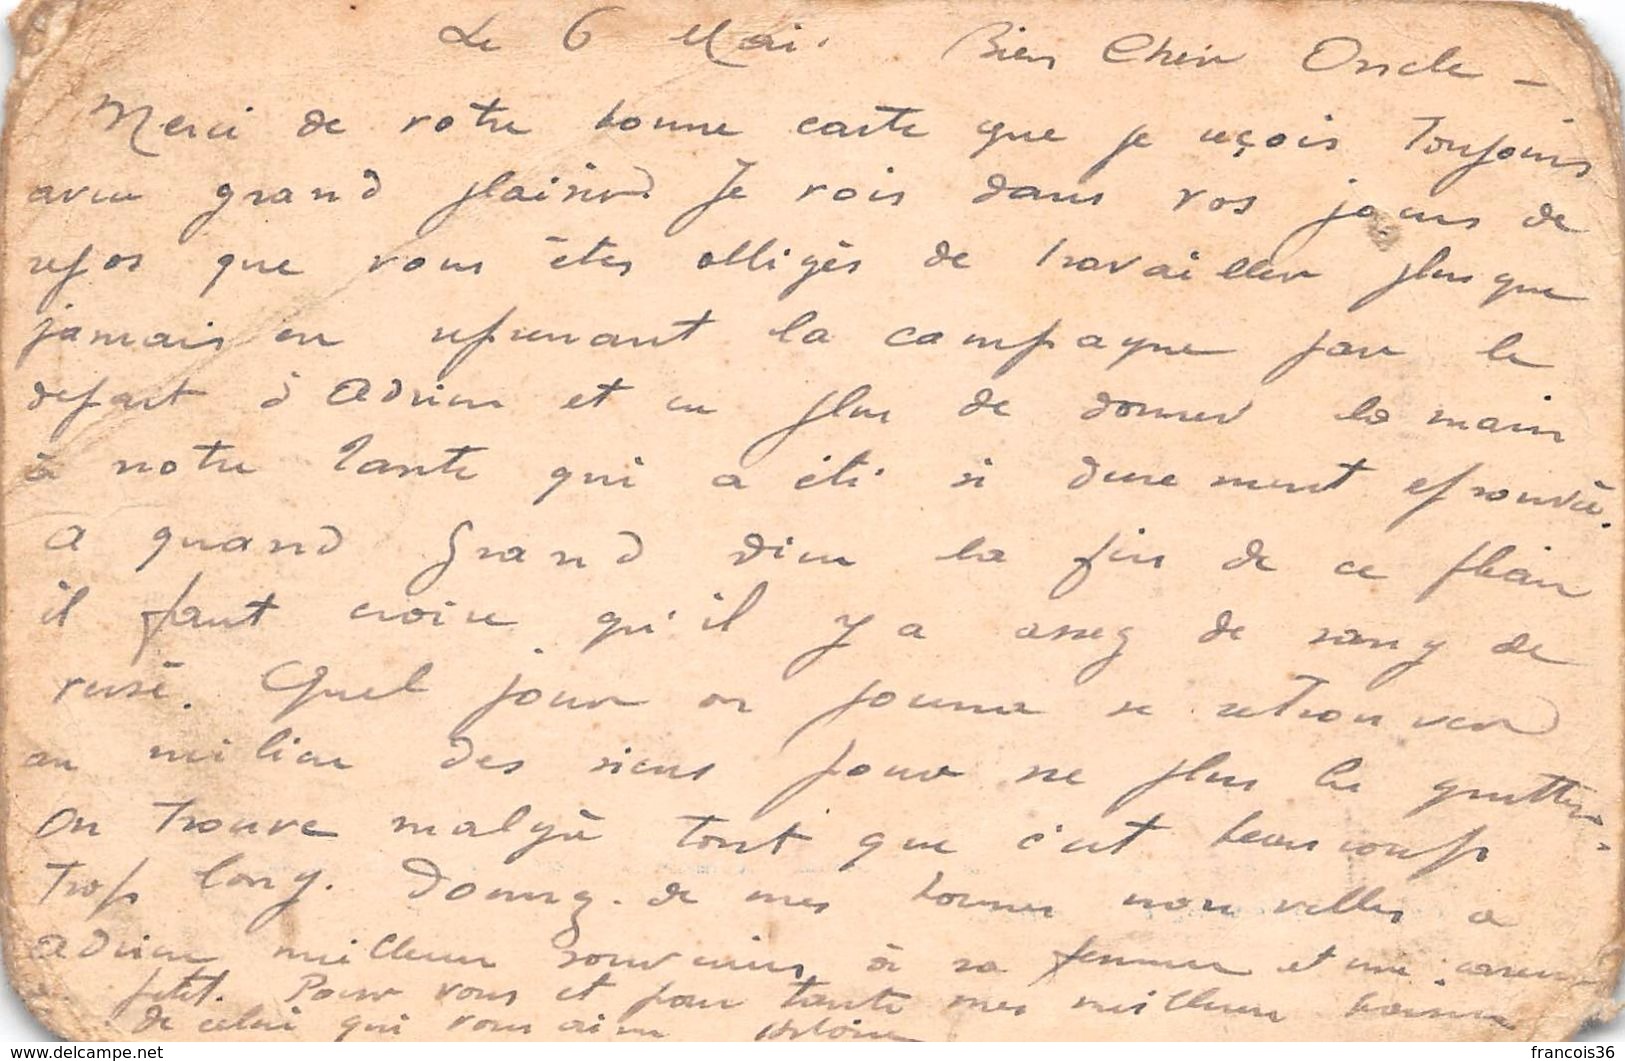 Le 6 Mai. Bien Cher Oncle -
Merci de votre bonne carte que je reçois toujours
avec grand plaisir. Je vois dans vos jours de
repos que vous êtes obligés de travailler plus que
jamais en reprenant la campagne par le
depart à Adrien et en plus de donner la main
à notre Tante qui a été si durement éprouvée.
A quand Grand Dieu la fin de ce fléau
il faut croire qu'il y a assez de sang de
versé. Quel jour on pourra se retrouver
au milieu des siens pour ne plus les quitter.
On trouve malgré tout que c'est beaucoup
trop long. Donnez de mes bonnes nouvelles a
Adrien meilleurs souvenirs à sa femme et une caresse
petit. Pour vous et pour tante mes meilleurs baisers
de celui qui vous aime
francois36
www.delcampe.net